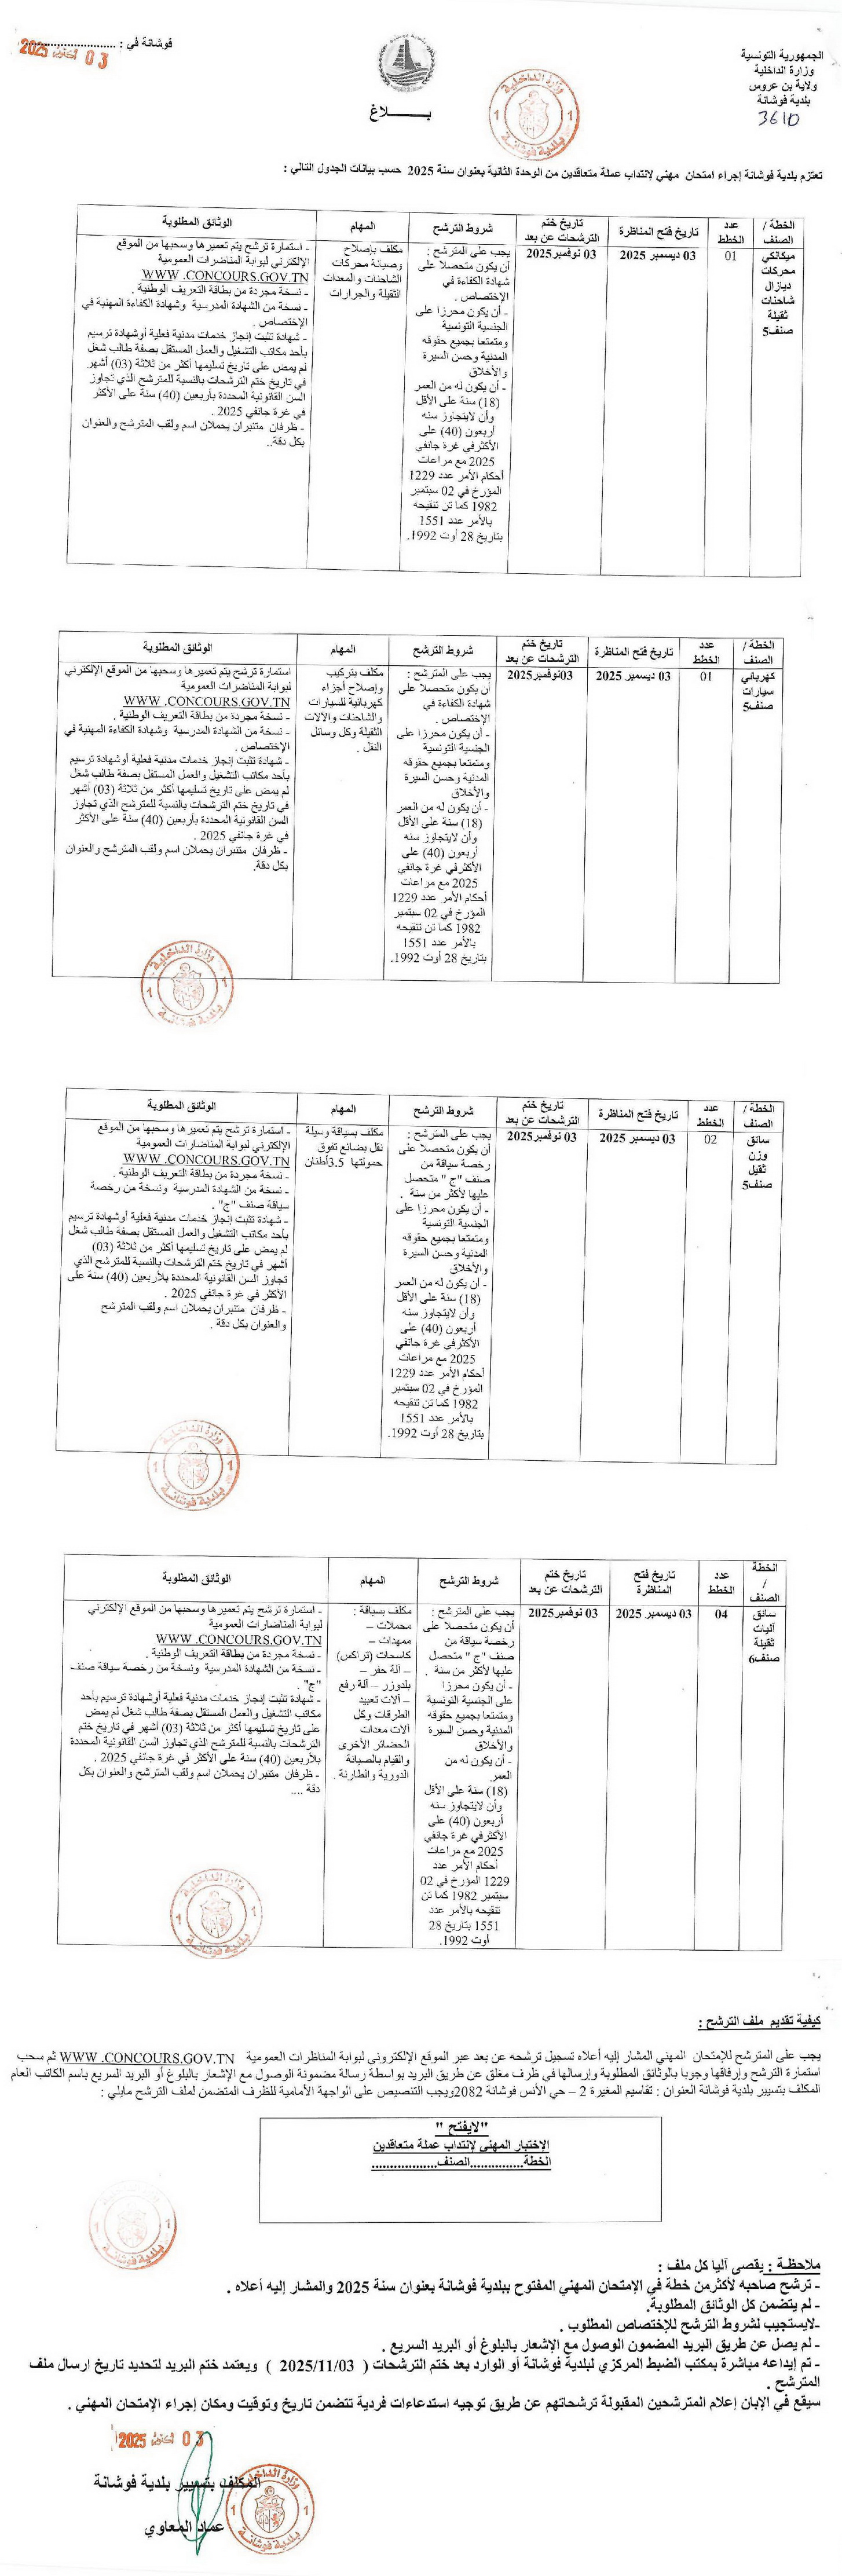 الجمهورية التونسية
وزارة الداخلية
ولاية بن عروس
بلدية فوشانة
3610
فوشانة في : ........................
03 أكتوبر 2025
بـــــــلاغ
تعتزم بلدية فوشانة إجراء امتحان مهني لإنتداب عملة متعاقدين من الوحدة الثانية بعنوان سنة 2025 حسب بيانات الجدول التالي :
الخطة / الصنف
عدد الخطط
تاريخ فتح المناظرة
تاريخ ختم الترشحات عن بعد
شروط الترشح
المهام
الوثائق المطلوبة
ميكانكي
محركات
ديازال
شاحنات
ثقيلة
صنف5
01
03 ديسمبر 2025
03 نوفمبر2025
يجب على المترشح :
أن يكون متحصلا على
شهادة الكفاءة في
الإختصاص .
- أن يكون محرزا على
الجنسية التونسية
ومتمتعا بجميع حقوقه
المدنية وحسن السيرة
والأخلاق
- أن يكون له من العمر
(18) سنة على الأقل
وأن لايتجاوز سنه
أربعون (40) على
الأكثرفي غرة جانفي
2025 مع مراعات
أحكام الأمر عدد 1229
المؤرخ في 02 سبتمبر
1982 كما تن تنقيحه
بالأمر عدد 1551
بتاريخ 28 أوت 1992.
مكلف بإصلاح
وصيانة محركات
الشاحنات والمعدات
الثقيلة والجرارات
- استمارة ترشح يتم تعميرها وسحبها من الموقع
الإلكتروني لبوابة المناضرات العمومية
WWW .CONCOURS.GOV.TN
- نسخة مجردة من بطاقة التعريف الوطنية .
- نسخة من الشهادة المدرسية وشهادة الكفاءة المهنية في
الإختصاص .
- شهادة تثبت إنجاز خدمات مدنية فعلية أوشهادة ترسيم
بأحد مكاتب التشغيل والعمل المستقل بصفة طالب شغل
لم يمض على تاريخ تسليمها أكثر من ثلاثة (03) أشهر
في تاريخ ختم الترشحات بالنسبة للمترشح الذي تجاوز
السن القانونية المحددة بأربعين (40) سنة على الأكثر
في غرة جانفي 2025 .
- ظرفان متنبران يحملان اسم ولقب المترشح والعنوان
بكل دقة..
الخطة / الصنف
عدد الخطط
تاريخ فتح المناظرة
تاريخ ختم الترشحات عن بعد
شروط الترشح
المهام
الوثائق المطلوبة
كهربائي
سيارات
صنف5
01
03 ديسمبر 2025
03نوفمبر2025
يجب على المترشح :
أن يكون متحصلا على
شهادة الكفاءة في
الإختصاص .
- أن يكون محرزا على
الجنسية التونسية
ومتمتعا بجميع حقوقه
المدنية وحسن السيرة
والأخلاق
- أن يكون له من العمر
(18) سنة على الأقل
وأن لايتجاوز سنه
أربعون (40) على
الأكثرفي غرة جانفي
2025 مع مراعات
أحكام الأمر عدد 1229
المؤرخ في 02 سبتمبر
1982 كما تن تنقيحه
بالأمر عدد 1551
بتاريخ 28 أوت 1992.
مكلف بتركيب
وإصلاح أجزاء
كهربائية للسيارات
والشاحنات والآلات
الثقيلة وكل وسائل
النقل .
استمارة ترشح يتم تعميرها وسحبها من الموقع الإلكتروني
لبوابة المناضرات العمومية
WWW .CONCOURS.GOV.TN
- نسخة مجردة من بطاقة التعريف الوطنية .
- نسخة من الشهادة المدرسية وشهادة الكفاءة المهنية في
الإختصاص .
- شهادة تثبت إنجاز خدمات مدنية فعلية أوشهادة ترسيم
بأحد مكاتب التشغيل والعمل المستقل بصفة طالب شغل
لم يمض على تاريخ تسليمها أكثر من ثلاثة (03) أشهر
في تاريخ ختم الترشحات بالنسبة للمترشح الذي تجاوز
السن القانونية المحددة بأربعين (40) سنة على الأكثر
في غرة جانفي 2025 .
- ظرفان متنبران يحملان اسم ولقب المترشح والعنوان
بكل دقة.
الخطة / الصنف
عدد الخطط
تاريخ فتح المناظرة
تاريخ ختم الترشحات عن بعد
شروط الترشح
المهام
الوثائق المطلوبة
سائق
وزن
ثقيل
صنف5
02
03 ديسمبر 2025
03 نوفمبر2025
يجب على المترشح :
أن يكون متحصلا على
رخصة سياقة من
صنف "ج " متحصل
عليها لأكثر من سنة .
- أن يكون محرزا على
الجنسية التونسية
ومتمتعا بجميع حقوقه
المدنية وحسن السيرة
والأخلاق
- أن يكون له من العمر
(18) سنة على الأقل
وأن لايتجاوز سنه
أربعون (40) على
الأكثرفي غرة جانفي
2025 مع مراعات
أحكام الأمر عدد 1229
المؤرخ في 02 سبتمبر
1982 كما تن تنقيحه
بالأمر عدد 1551
بتاريخ 28 أوت 1992.
مكلف بسياقة وسيلة
نقل بضائع تفوق
حمولتها 3.5أطنان
- استمارة ترشح يتم تعميرها وسحبها من الموقع
الإلكتروني لبوابة المناضرات العمومية
WWW .CONCOURS.GOV.TN
- نسخة مجردة من بطاقة التعريف الوطنية .
- نسخة من الشهادة المدرسية ونسخة من رخصة
سياقة صنف "ج" .
- شهادة تثبت إنجاز خدمات مدنية فعلية أوشهادة ترسيم
بأحد مكاتب التشغيل والعمل المستقل بصفة طالب شغل
لم يمض على تاريخ تسليمها أكثر من ثلاثة (03)
أشهر في تاريخ ختم الترشحات بالنسبة للمترشح الذي
تجاوز السن القانونية المحددة بلأربعين (40) سنة على
الأكثر في غرة جانفي 2025 .
- ظرفان متنبران يحملان اسم ولقب المترشح
والعنوان بكل دقة .
الخطة / الصنف
عدد الخطط
تاريخ فتح المناظرة
تاريخ ختم الترشحات عن بعد
شروط الترشح
المهام
الوثائق المطلوبة
سائق
آليات
ثقيلة
صنف6
04
03 ديسمبر 2025
03 نوفمبر2025
يجب على المترشح :
أن يكون متحصلا على
رخصة سياقة من
صنف "ج " متحصل
عليها لأكثر من سنة .
- أن يكون محرزا
على الجنسية التونسية
ومتمتعا بجميع حقوقه
المدنية وحسن السيرة
والأخلاق
- أن يكون له من
العمر
(18) سنة على الأقل
وأن لايتجاوز سنه
أربعون (40) على
الأكثرفي غرة جانفي
2025 مع مراعات
أحكام الأمر عدد
1229 المؤرخ في 02
سبتمبر 1982 كما تن
تنقيحه بالأمر عدد
1551 بتاريخ 28
أوت 1992.
مكلف بسياقة :
محملات –
ممهدات –
كاسحات (تراكس)
– آلة حفر –
بلدوزر – آلة رفع
– آلات تعبيد
الطرقات وكل
آلات معدات
الحضائر الأخرى
والقيام بالصيانة
الدورية والطارئة .
- استمارة ترشح يتم تعميرها وسحبها من الموقع الإلكتروني
لبوابة المناضرات العمومية
WWW .CONCOURS.GOV.TN
- نسخة مجردة من بطاقة التعريف الوطنية .
- نسخة من الشهادة المدرسية ونسخة من رخصة سياقة صنف
"ج" .
- شهادة تثبت إنجاز خدمات مدنية فعلية أوشهادة ترسيم بأحد
مكاتب التشغيل والعمل المستقل بصفة طالب شغل لم يمض
على تاريخ تسليمها أكثر من ثلاثة (03) أشهر في تاريخ ختم
الترشحات بالنسبة للمترشح الذي تجاوز السن القانونية المحددة
بلأربعين (40) سنة على الأكثر في غرة جانفي 2025 .
- ظرفان متنبران يحملان اسم ولقب المترشح والعنوان بكل
دقة ....
كيفية تقديم ملف الترشح :
يجب على المترشح للإمتحان المهني المشار إليه أعلاه تسجيل ترشحه عن بعد عبر الموقع الإلكتروني لبوابة المناظرات العمومية WWW .CONCOURS.GOV.TN ثم سحب
استمارة الترشح وإرفاقها وجوبا بالوثائق المطلوبة وإرسالها في ظرف مغلق عن طريق البريد بواسطة رسالة مضمونة الوصول مع الإشعار بالبلوغ أو البريد السريع باسم الكاتب العام
المكلف بتسيير بلدية فوشانة العنوان : تقاسيم المغيرة 2 – حي الأنس فوشانة 2082ويجب التنصيص على الواجهة الأمامية للظرف المتضمن لملف الترشح مايلي :
"لايفتح "
الإختبار المهني لإنتداب عملة متعاقدين
الخطة...............الصنف..................
ملاحظة : يقصى آليا كل ملف :
- ترشح صاحبه لأكثرمن خطة في الإمتحان المهني المفتوح ببلدية فوشانة بعنوان سنة 2025 والمشار إليه أعلاه .
- لم يتضمن كل الوثائق المطلوبة.
-لايستجيب لشروط الترشح للإختصاص المطلوب .
- لم يصل عن طريق البريد المضمون الوصول مع الإشعار بالبلوغ أو البريد السريع .
- تم إيداعه مباشرة بمكتب الضبط المركزي لبلدية فوشانة أو الوارد بعد ختم الترشحات ( 2025/11/03 ) ويعتمد ختم البريد لتحديد تاريخ ارسال ملف
المترشح .
سيقع في الإبان إعلام المترشحين المقبولة ترشحاتهم عن طريق توجيه استدعاءات فردية تتضمن تاريخ وتوقيت ومكان إجراء الإمتحان المهني .
03 أكتوبر 2025
المكلف بتسيير بلدية فوشانة
عماد المعاوي
وزارة الداخلية
1 1
بلدية فوشانة